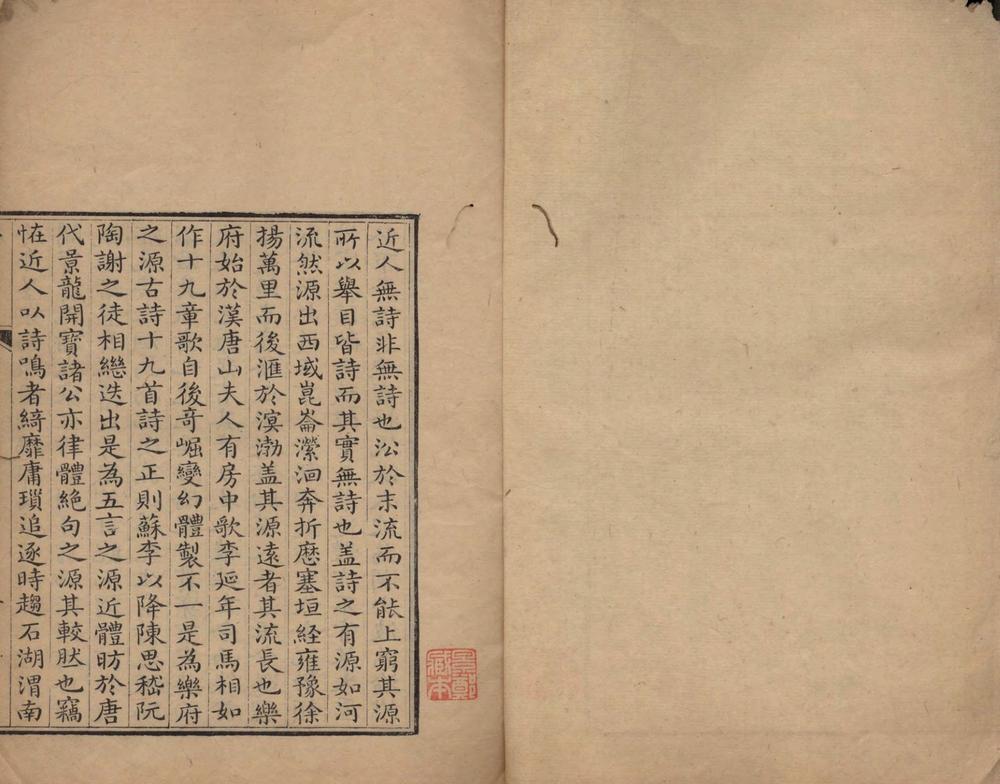 近人無詩非無詩也沿於末流而不能上窮其源
所以舉目皆詩而其實無詩也盖詩之有源如河
流然源出西域崑崙瀠洄奔折歴塞垣経雍豫徐
揚萬里而後滙於溟渤盖其源遠者其流長也樂
府始於漢唐山夫人有房中歌李延年司馬相如
作十九章歌自後竒崛變幻體製不一是為樂府
之源古詩十九首詩之正則蘇李以降陳思嵇阮
陶謝之徒相繼迭出是為五言之源近體昉於唐
代景龍開寶諸公亦律體絶句之源其較然也竊
恠近人以詩鳴者綺靡庸瑣追逐時趨石湖渭南
景鄭
藏本